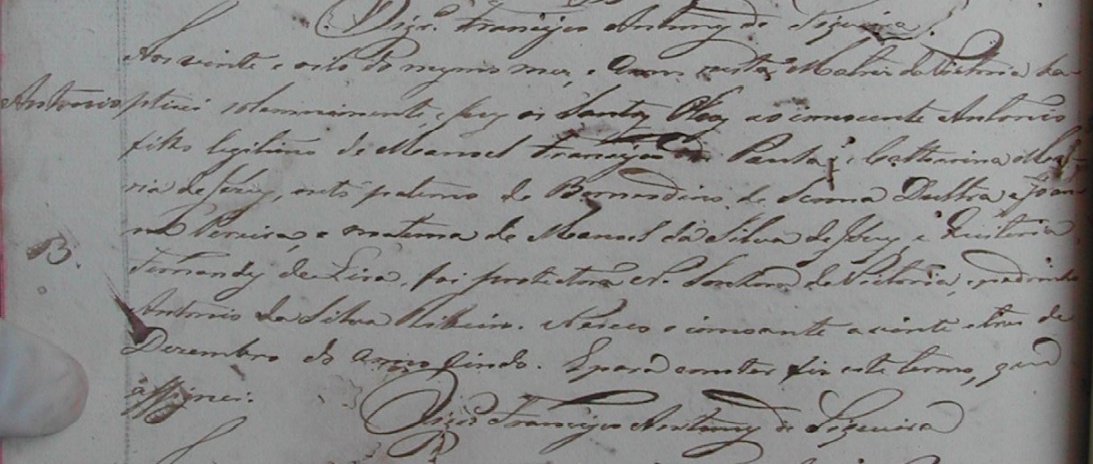 Vigr.º Francisco Antunes de Siqueira.
Aos vinte e oito do mesmo mez, e Anno nesta Matriz da Victoria ba-
Antonio ptizei solemnimente, e puz os Santos Oleos ao innocente Antonio
filho legitimo de Manoel Francisco Pauta, e Catharina Ma-
ria de Jesus, neto paterno de Bernardino de Senna Dultra e Joan-
na Pereira, e materna de Manoel da Silva de Jesus, e Quiteria
B. Fernandes de Lira, foi protectora N. Senhora da Victoria, e padrinho
Antonio da Silva Ribeiro. Nasceo o innocente a vinte e tres de
Dezembro do Anno findo. E para constar fiz este termo, que
assignei.
Vigr.º Francisco Antunes de Siqueira